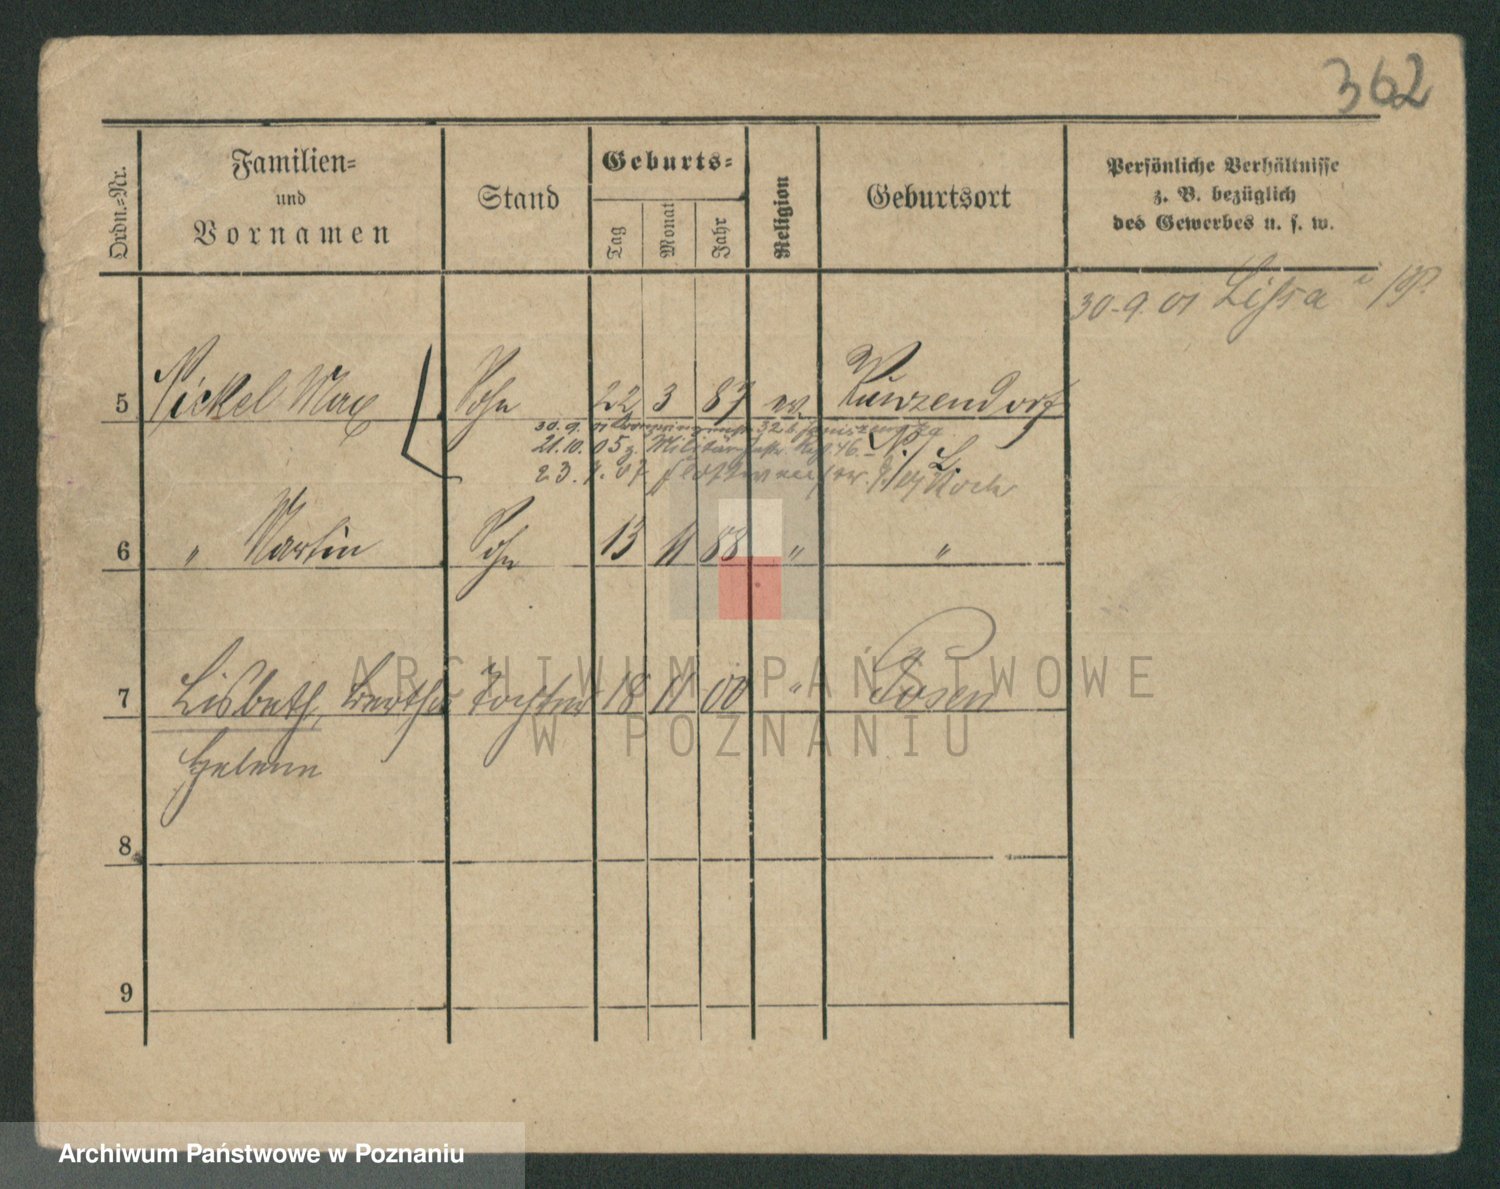 362
Ordn.-Nr.
Familien-
und
Vornamen
Stand
Geburts-
Tag
Monat
Jahr
Religion
Geburtsort
Persönliche Verhältnisse
z. B. bezüglich
des Gewerbes u. s. w.
30-9.01 Lissa i/P.
5 Nickel Max Sohn 22 3 87 ev Kunzendorf
30.9.01
21.10.05 z. Militär Inftr. Rgt. 46.
23. 07
6 " Martin Sohn 13 11 88 " "
7 Lisbeth, Bertha Tochter 18 11 00 " Posen
Helene
8
9
ARCHIWUM PAŃSTWOWE
W POZNANIU
Archiwum Państwowe w Poznaniu